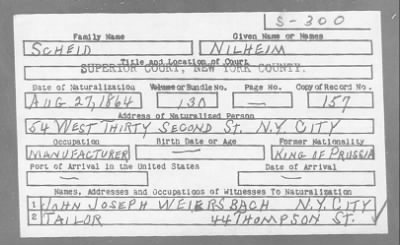 S-300
Family Name Given Name or Names
SCHEID NILHEIM
Title and Location of Court
SUPERIOR COURT, NEW YORK COUNTY.
Date of Naturalization Volume or Bundle No. Page No. Copy of Record No.
AUG 27, 1864 130 — 157
Address of Naturalized Person
54 WEST THIRTY SECOND ST. N.Y. CITY
Occupation Birth Date or Age Former Nationality
MANUFACTURER — KING OF PRUSSIA
Port of Arrival in the United States Date of Arrival
— —
Names, Addresses and Occupations of Witnesses To Naturalization
1 JOHN JOSEPH WEIERSBACH N.Y. CITY
2 TAILOR 44 THOMPSON ST.